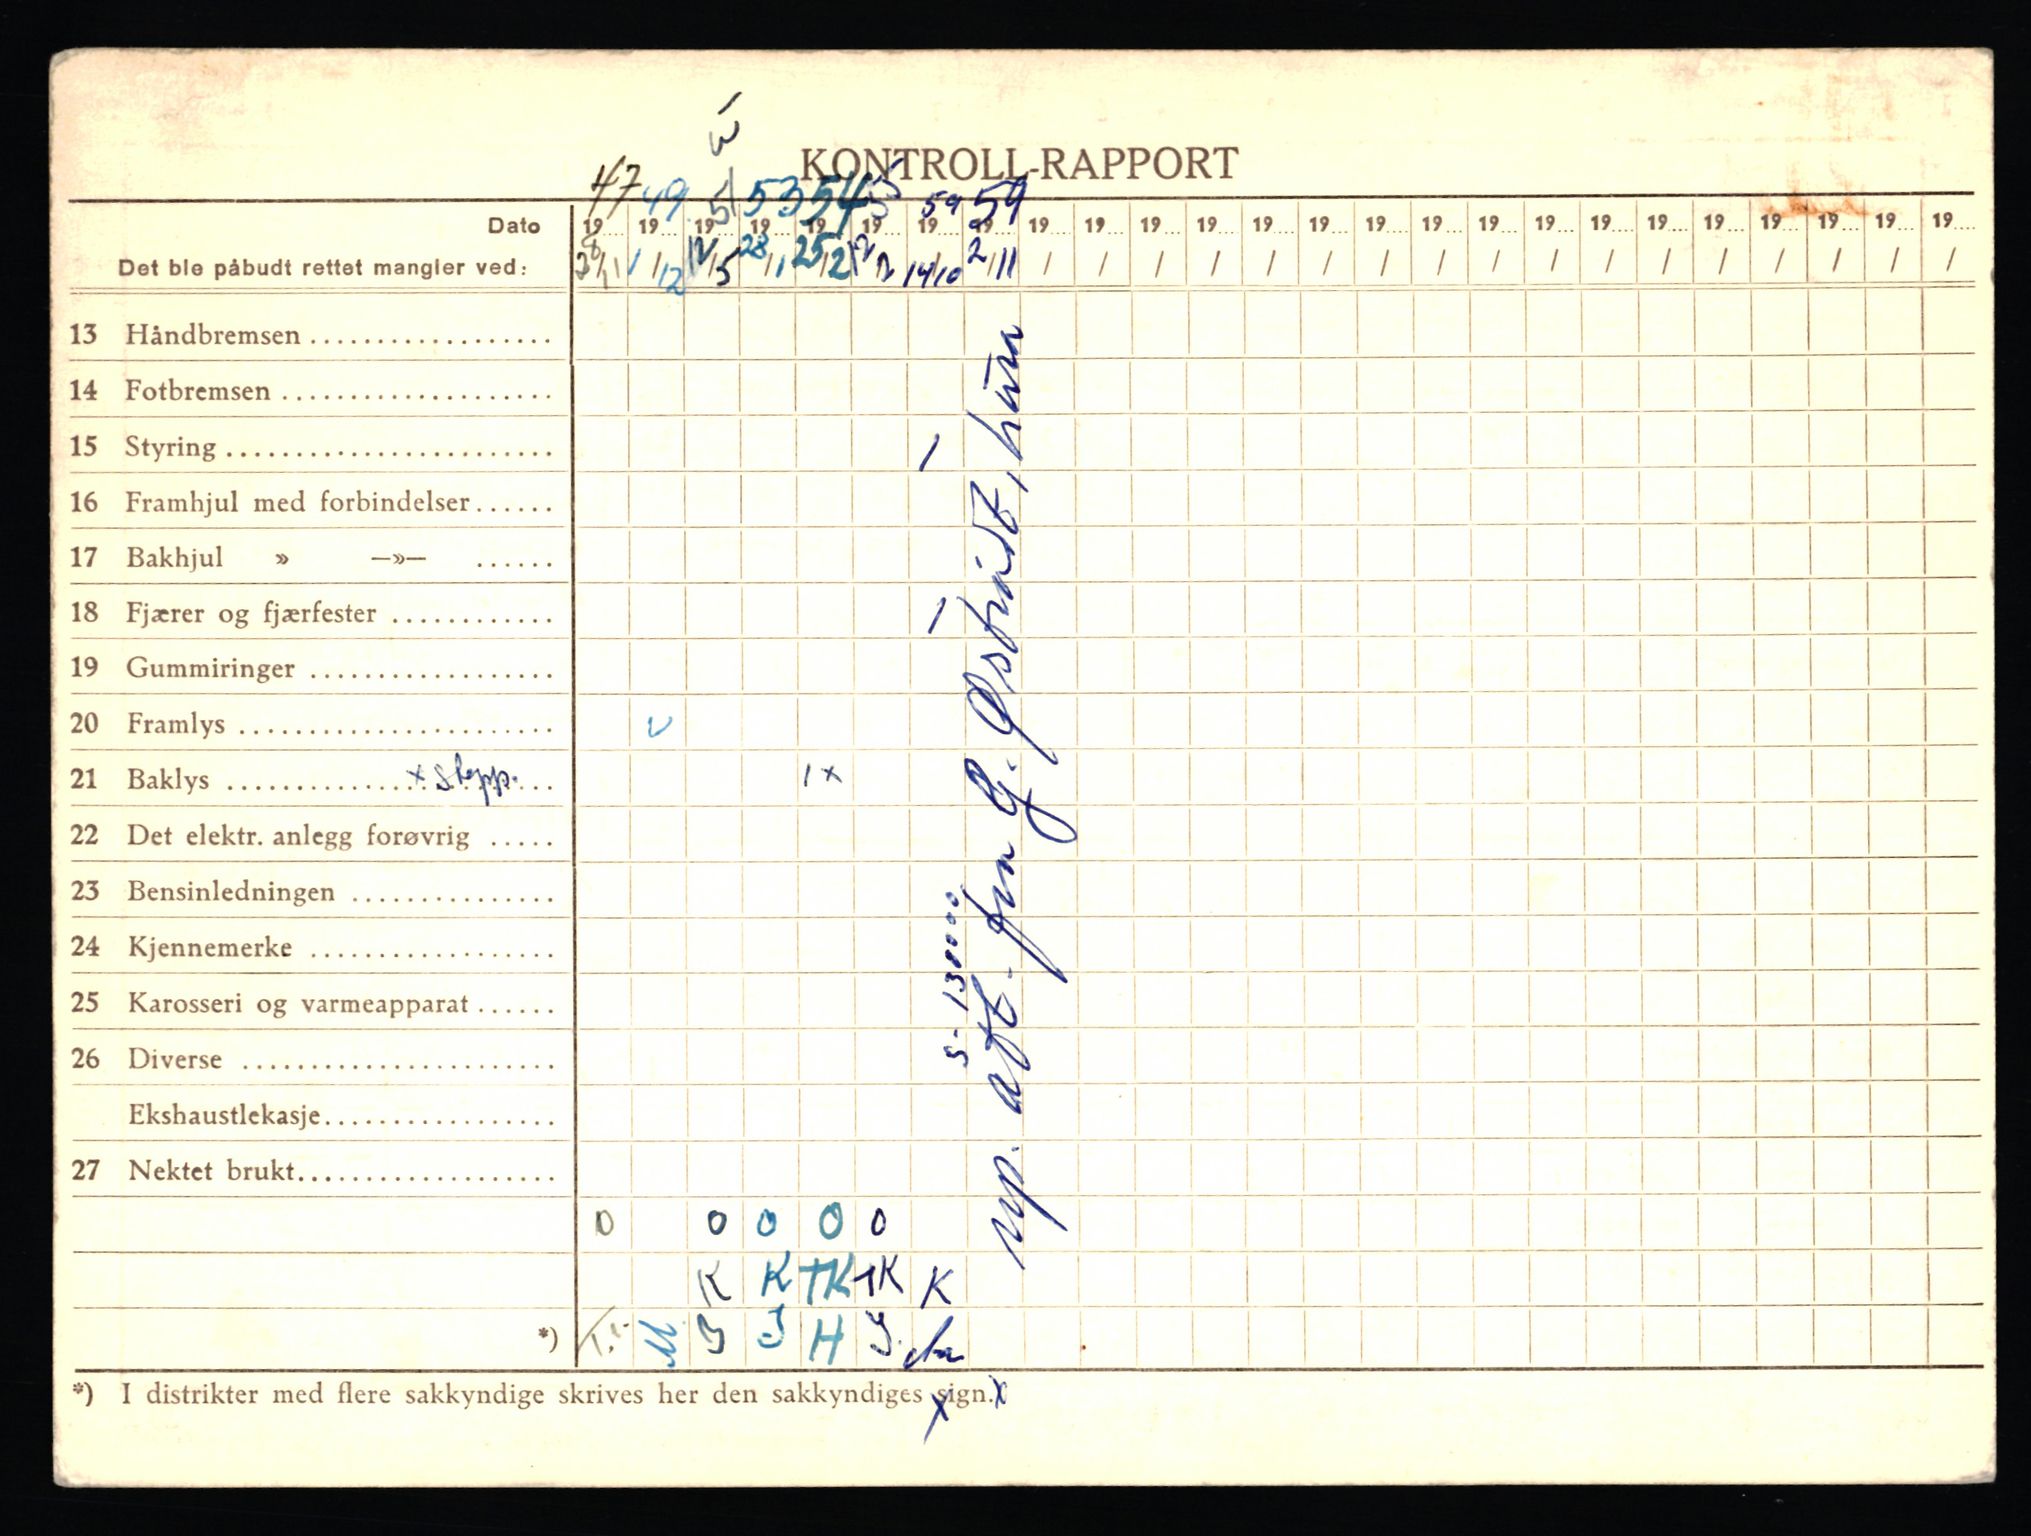 KONTROLL-RAPPORT
47 49 51 53 54 55 59 59
Dato 19.... 19.... 19.... 19.... 19.... 19.... 19.... 19.... 19.... 19.... 19.... 19.... 19.... 19.... 19.... 19.... 19.... 19.... 19.... 19.... 19.... 19.... 19.... 19.... 19....
Det ble påbudt rettet mangler ved: 1/12 12/5 28/1 25/2 14/10 2/11 / / / / / / / / / / / / / / / / /
13 Håndbremsen
14 Fotbremsen
15 Styring /
16 Framhjul med forbindelser
17 Bakhjul » —»—
18 Fjærer og fjærfester /
19 Gummiringer
20 Framlys v
21 Baklys x Stopp. 1 x
22 Det elektr. anlegg forøvrig
23 Bensinledningen
24 Kjennemerke
25 Karosseri og varmeapparat
26 Diverse
Ekshaustlekasje
27 Nektet brukt
0 0 0 0 0
K K TK TK K
*) M J J H J.
S- 130000
rep. att. fra G. Østbridt,
*) I distrikter med flere sakkyndige skrives her den sakkyndiges sign.
x x